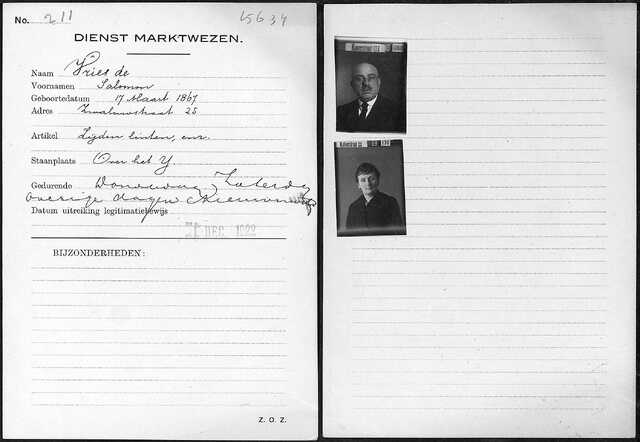 No. 211 15634
DIENST MARKTWEZEN.
Naam Vries de
Voornamen Salomon
Geboortedatum 17 Maart 1867
Adres Zwaluwstraat 25
Artikel Zijden linten, enz.
Staanplaats Over het Y.
Gedurende Donderdag, Zaterdag
overige dagen Nieuwm
Datum uitreiking legitimatiebewijs
21 DEC. 1922
BIJZONDERHEDEN:
Z. O. Z.